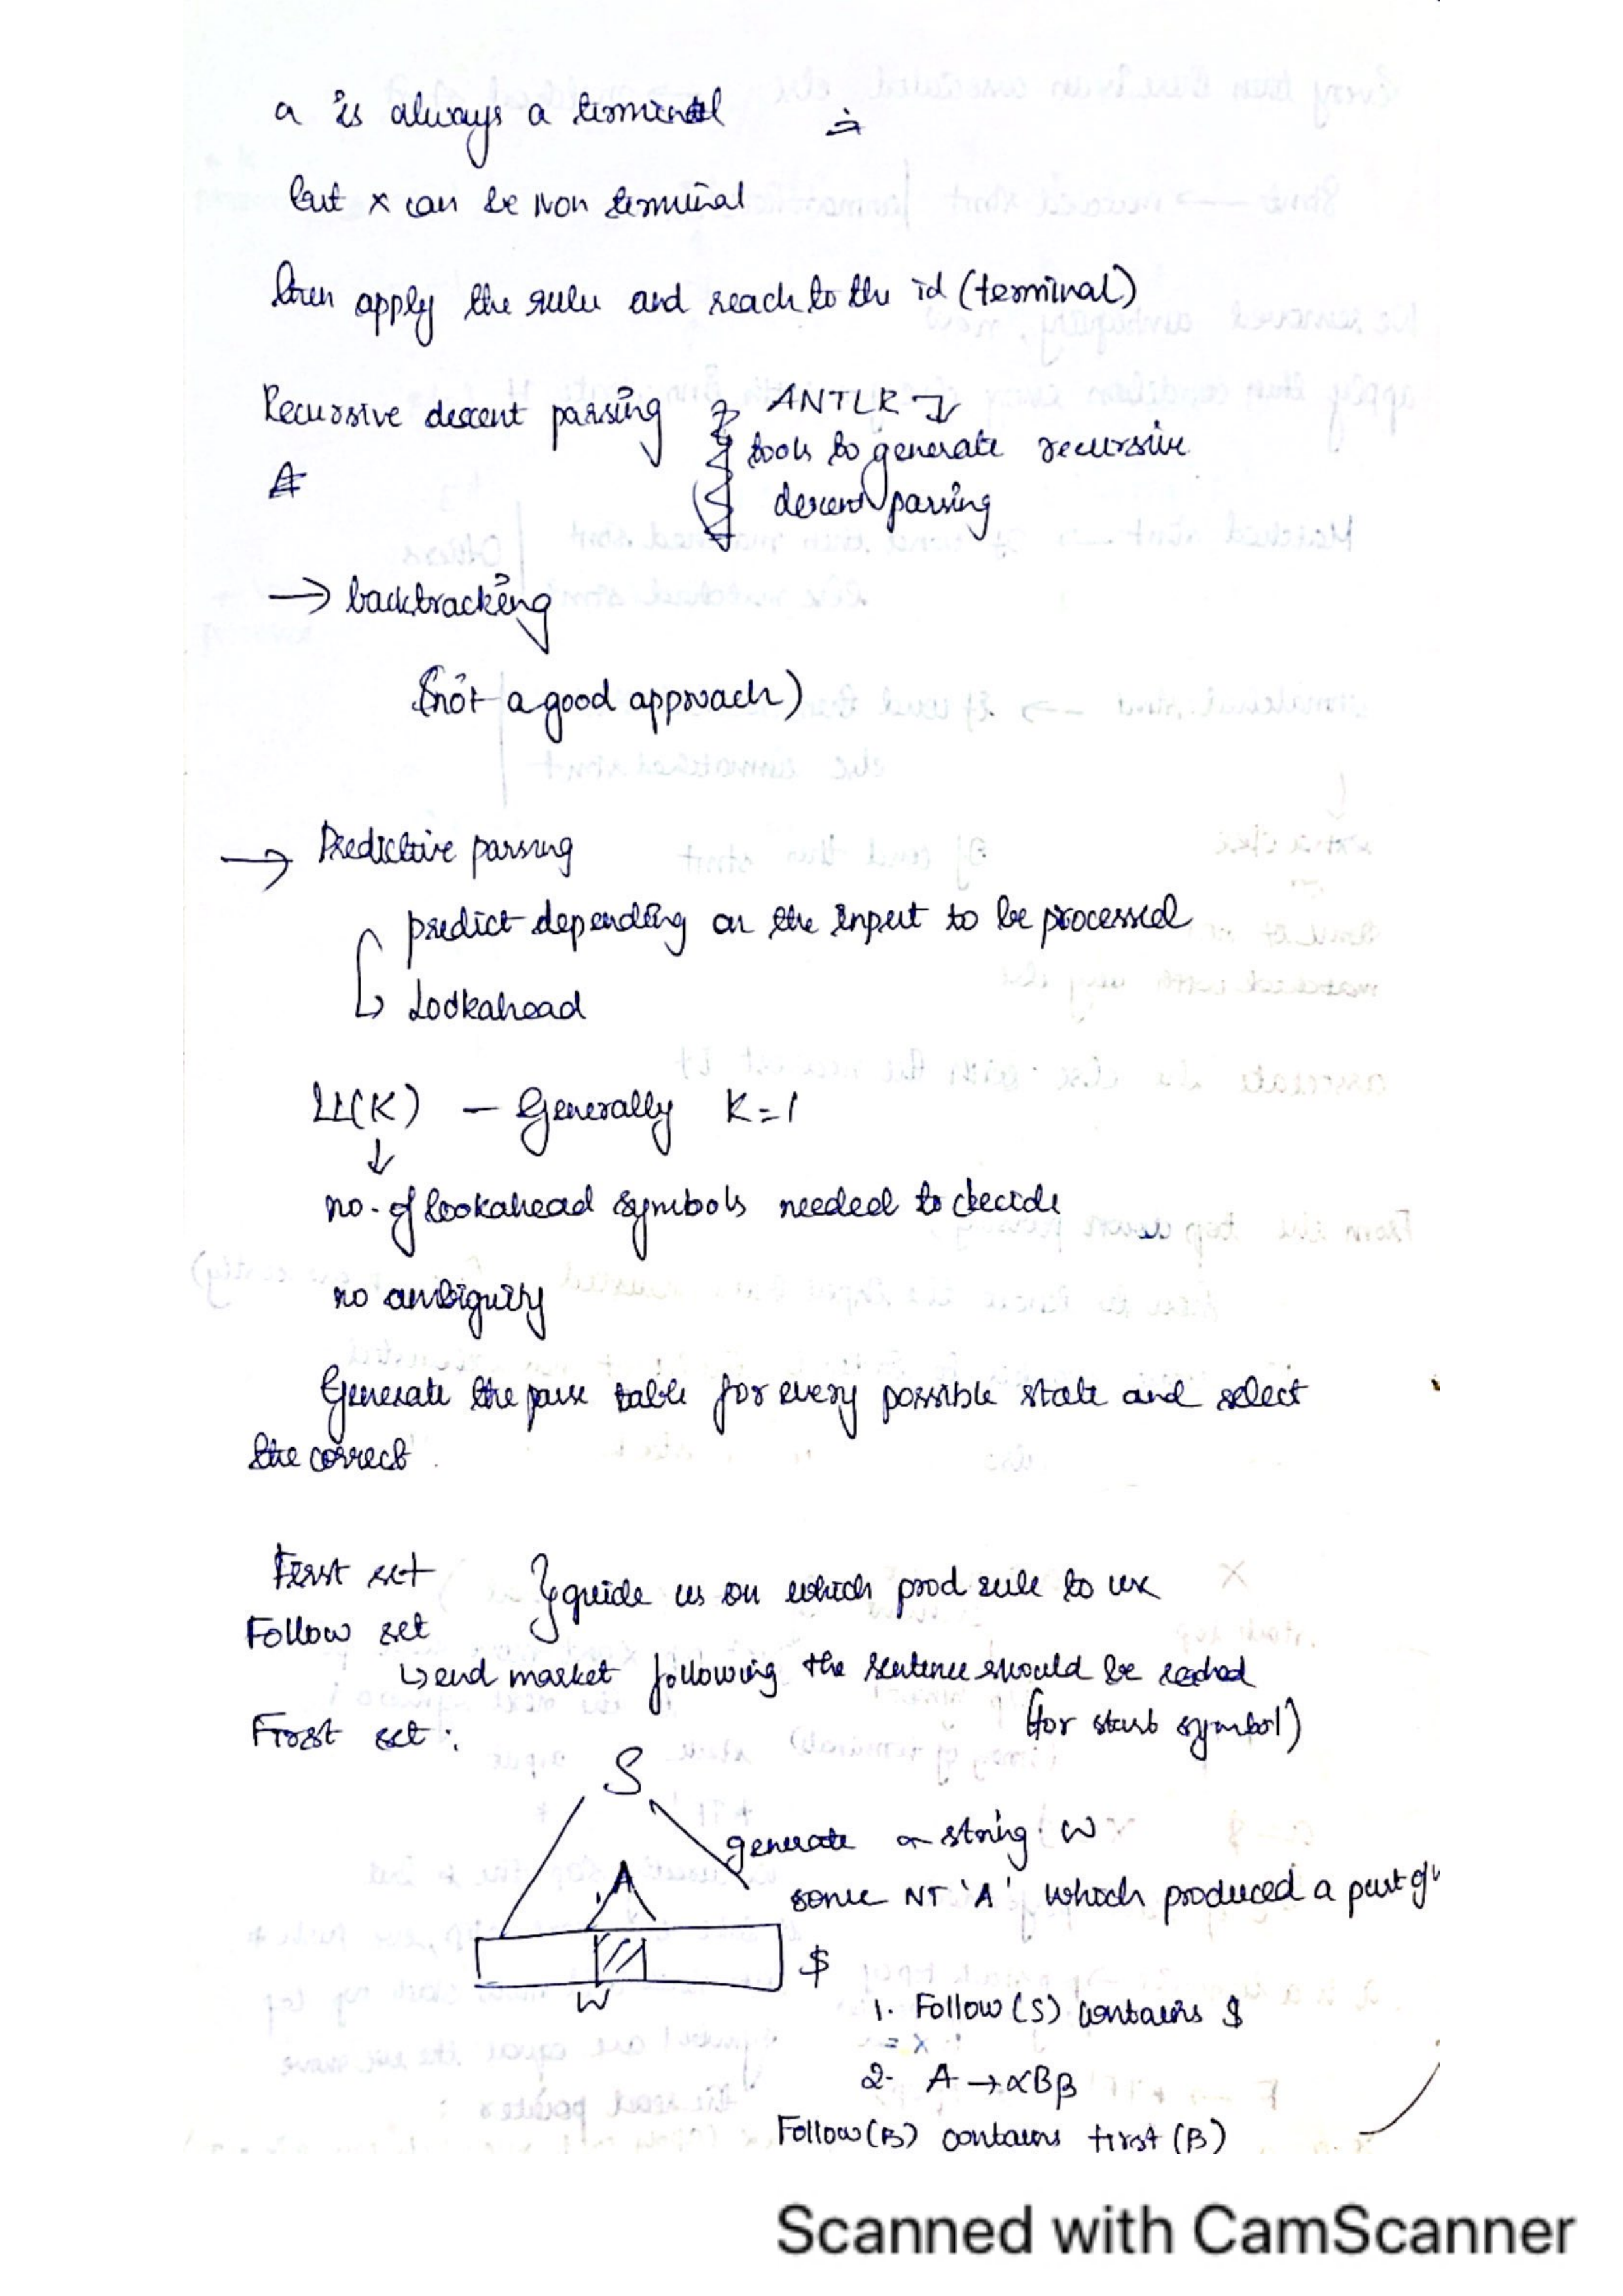 a is always a terminal
but x can be Non terminal
then apply the rules and reach to the id (terminal)
Recursive descent parsing
ANTLR
tools to generate recursive
descent parsing
→ backtracking
(not a good approach)
→ Predictive parsing
predict depending on the input to be processed
↳ Lookahead
LL(K) – Generally K=1
↓
no. of lookahead symbols needed to decide
no ambiguity
Generate the parse table for every possible state and select
the correct.
First set } guide us on which prod rule to use
Follow set
↳ end market following the sentence should be
(for start symbol)
First set :
S
generate a string w
A
some NT 'A' which produced a part of
$
W
1. Follow (S) contains $
2. A → αBβ
Follow(B) contains first (β)
Scanned with CamScanner